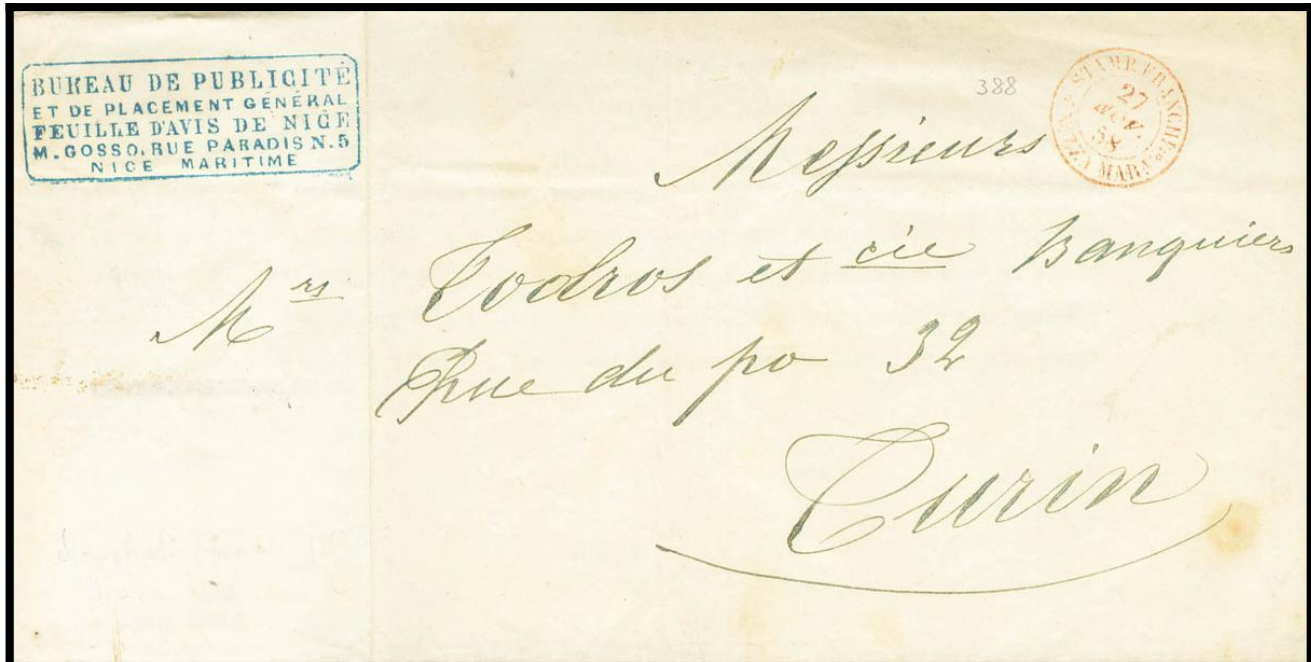 BUREAU DE PUBLICITÉ
ET DE PLACEMENT GÉNÉRAL
FEUILLE D'AVIS DE NICE
M. GOSSO, RUE PARADIS N. 5
NICE MARITIME
388
STAMP. FRANCHE
27
NOV.
58
NIZZA MAR.MA
Messieurs
Mrs Todros et cie Banquiers
Rue du po 32
Turin